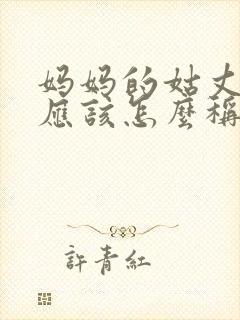 妈妈的姑丈
應該怎麼稱
許青紅